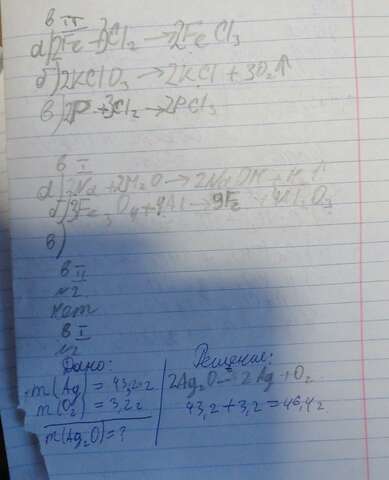 в II
а) 2Fe + 3Cl₂ → 2FeCl₃
б) 2KClO₃ → 2KCl + 3O₂↑
в) 2P + 3Cl₂ → 2PCl₃
в I
а) 2Na + 2H₂O → 2NaOH + H₂↑
б) 3Fe₃O₄ + 8Al → 9Fe + 4Al₂O₃
в)
в II
№2
нет
в I
№2
Дано:
m(Ag) = 43,2 г
m(O₂) = 3,2 г
m(Ag₂O) = ?
Решение:
2Ag₂O → 2Ag + O₂
43,2 + 3,2 = 46,4 г